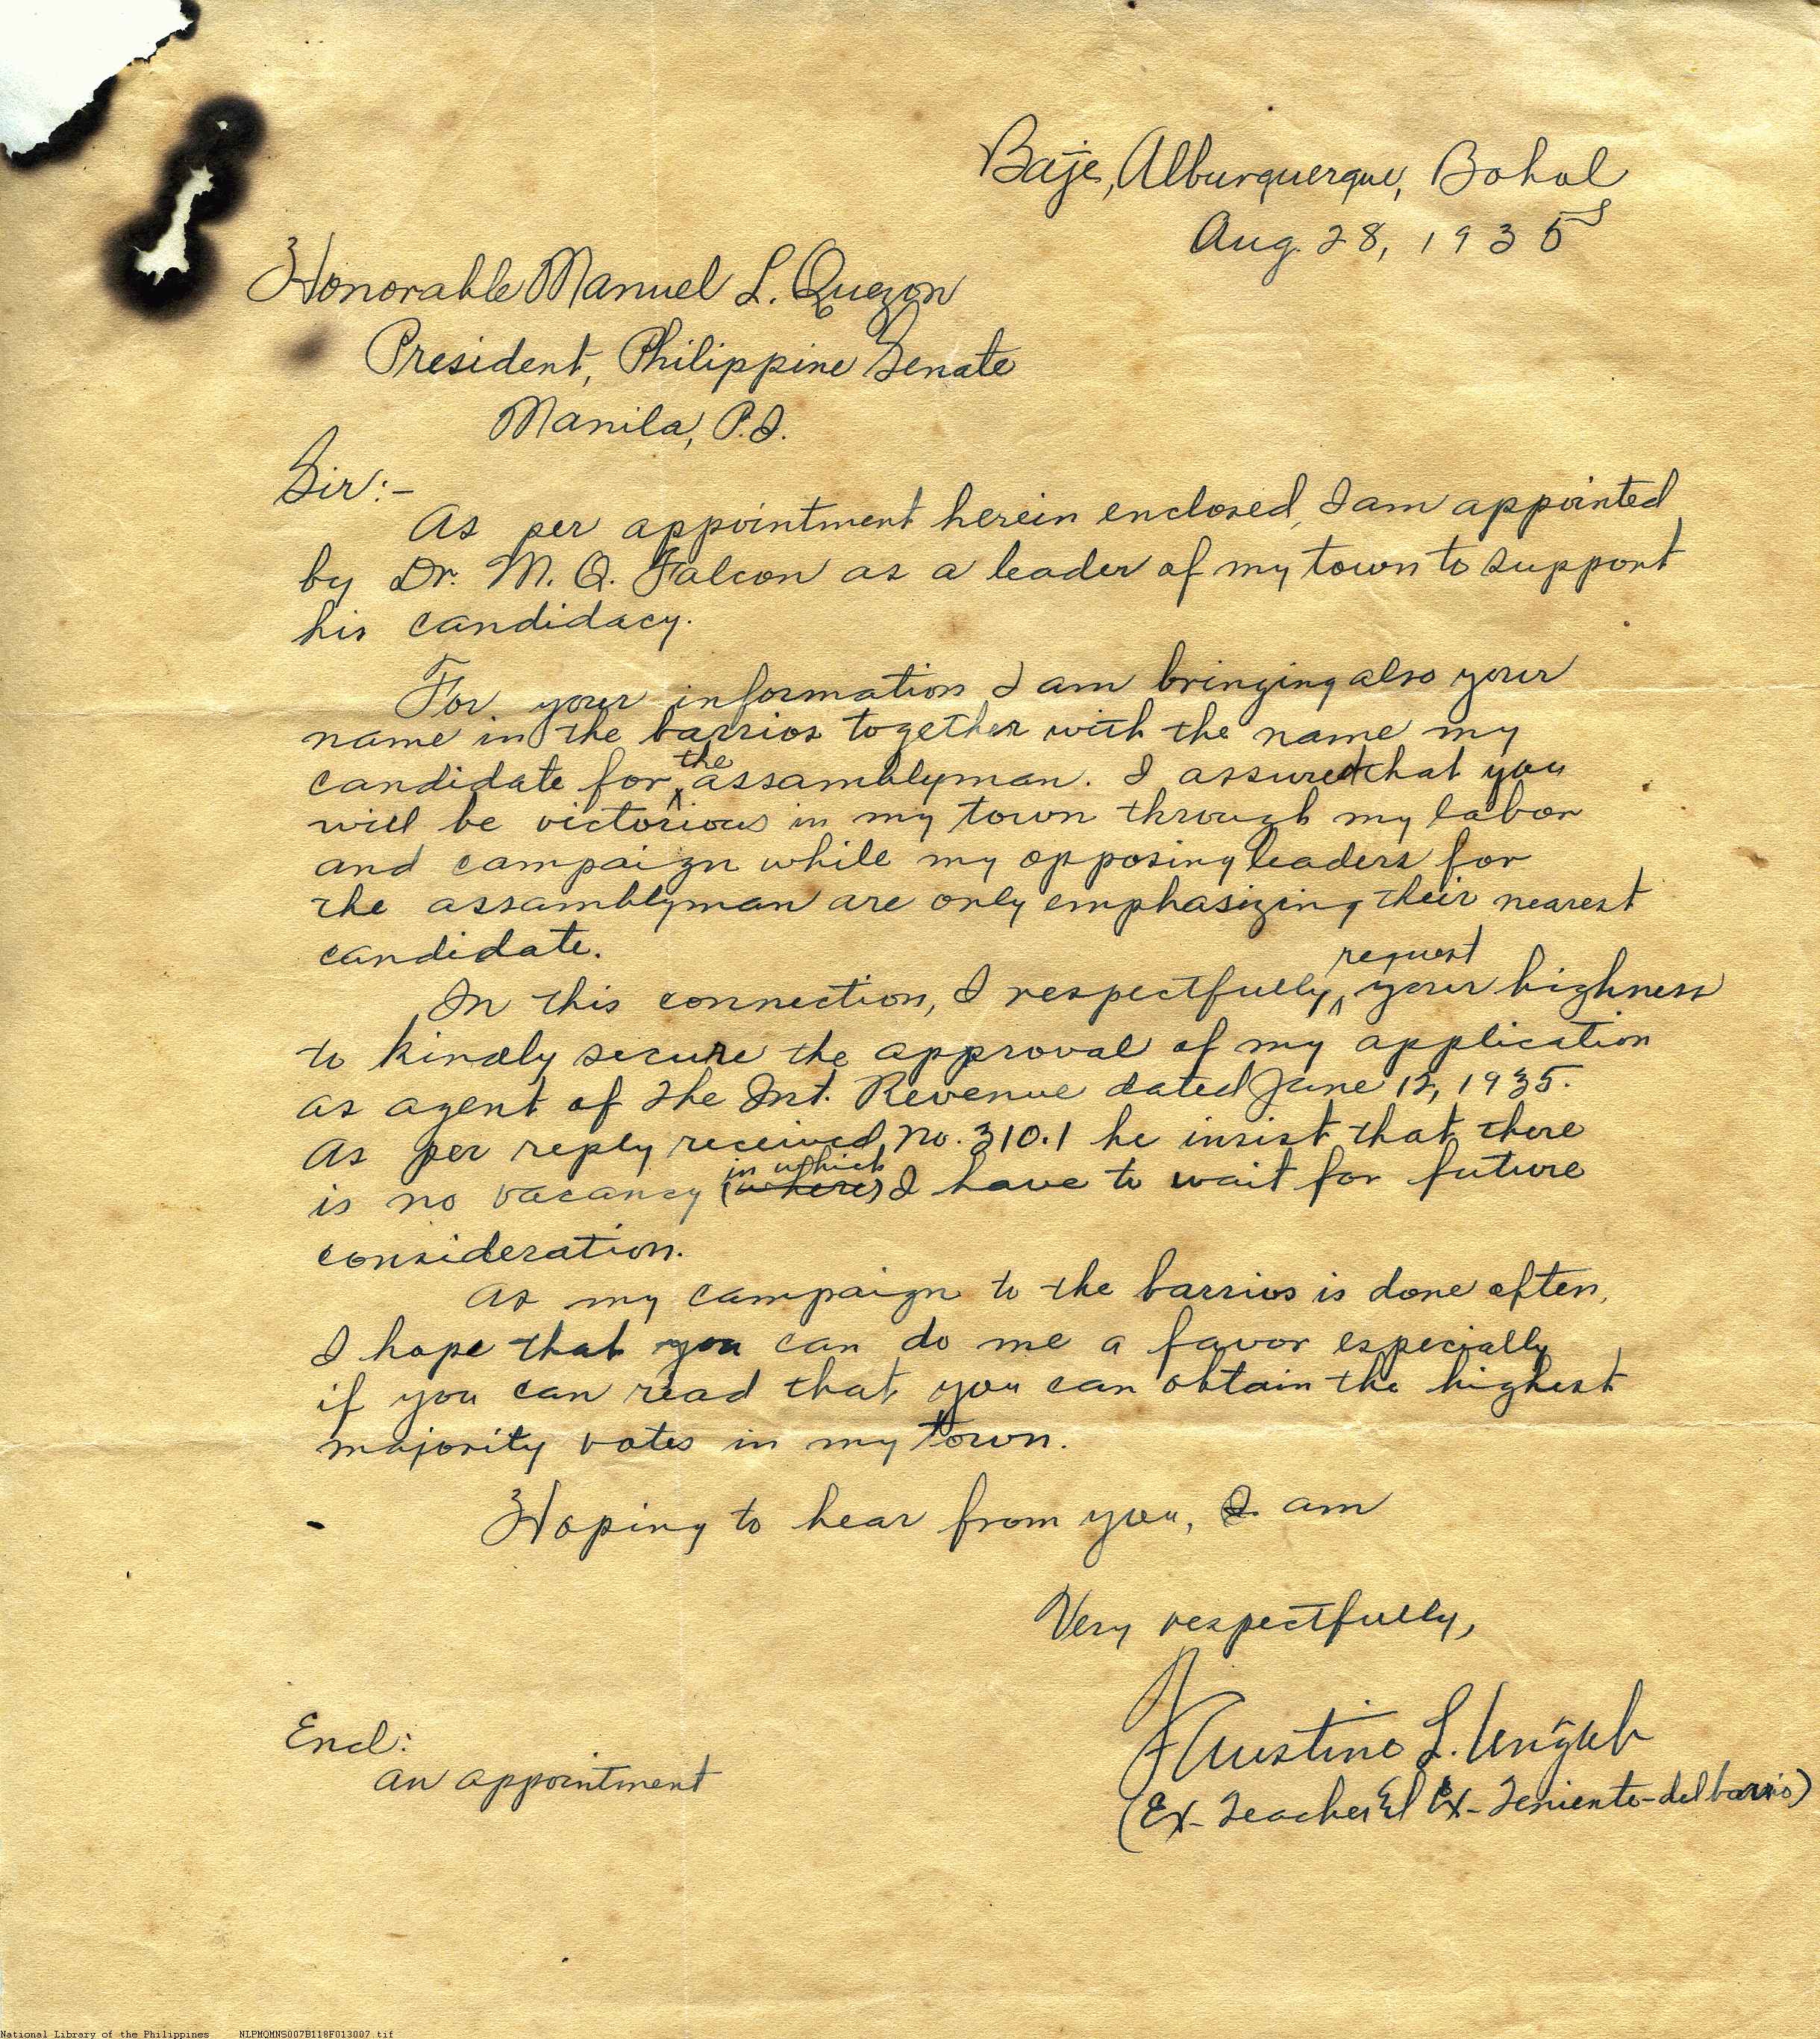 Baje, Alburquerque, Bohol
Aug. 28, 1935
Honorable Manuel L. Quezon
President, Philippine Senate
Manila, P.I.
Sir:-
As per appointment herein enclosed, I am appointed
by Dr. M. Q. Falcon as a leader of my town to support
his candidacy.
For your information I am bringing also your
name in the barrios together with the name my
candidate for the assamblyman. I assured that you
will be victorious in my town through my labor
and campaign while my opposing leaders for
the assamblyman are only emphasizing their nearest
candidate.
In this connection, I respectfully request your highness
to kindly secure the approval of my application
as agent of the Int. Revenue dated June 12, 1935.
As per reply received, No. 310.1 he insist that there
is no vacancy (where) in which I have to wait for future
consideration.
As my campaign to the barrios is done often,
I hope that you can do me a favor especially
if you can read that you can obtain the highest
majority votes in my town.
Hoping to hear from you, I am
Very respectfully,
Faustino L. Ungab
(Ex-Teacher Ex-Teniente-del barrio)
Encl:
an appointment
National Library of the Philippines NLPMQMNS007B118F013007.tif